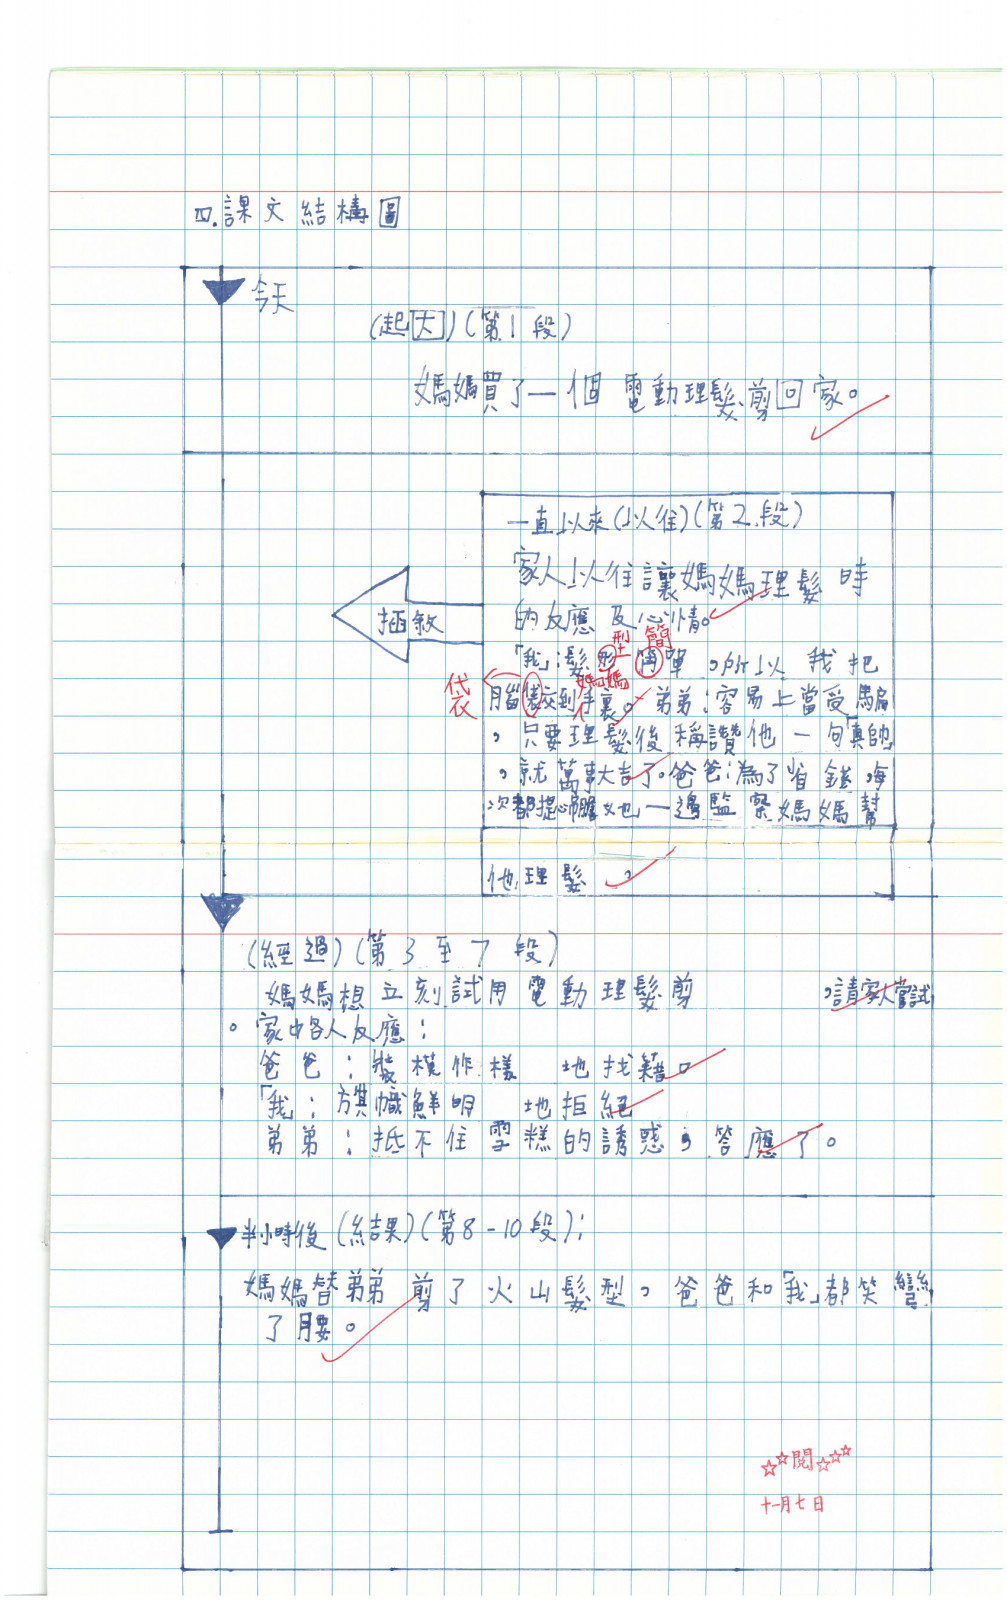 四.課文結構圖
今天
(起因)(第1段)
媽媽買了一個電動理髮剪回家。
一直以來(以往)(第2段)
家人以往讓媽媽理髮時
的反應及心情。
插敘
型 簡
「我」:髮形簡單,所以我把
媽媽
袋
腦袋交到手裏。弟弟:容易上當受騙
,只要理髮後稱讚他一句「真帥」
,就萬事大吉了。爸爸:為了省錢,每
次都提心吊膽地一邊監察媽媽幫
他理髮。
(經過)(第3至7段)
媽媽想立刻試用電動理髮剪,請家人嘗試
。家中各人反應:
爸爸:裝模作樣地找藉。
「我」:旗幟鮮明地拒絕
弟弟:抵不住雪糕的誘惑,答應了。
半小時後(結果)(第8-10段):
媽媽替弟弟剪了火山髮型。爸爸和「我」都笑彎
了腰。
☆☆閱☆☆☆
十一月七日